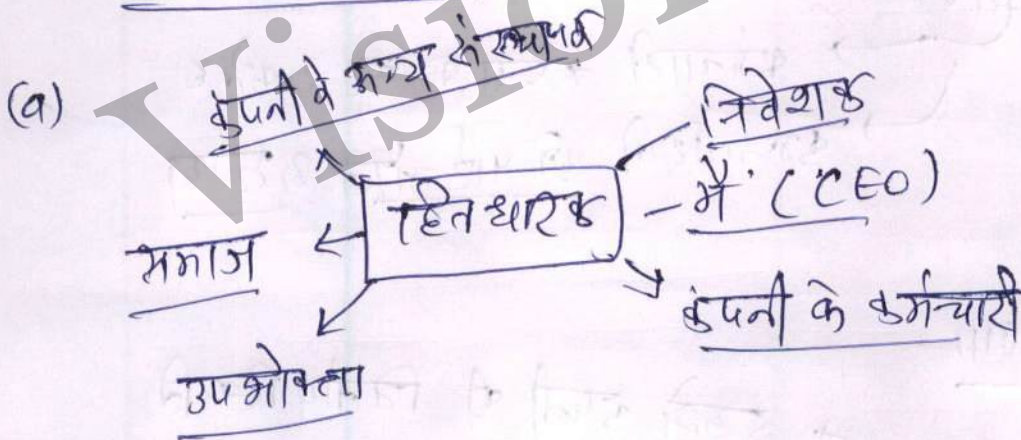 (a)
कंपनी के अन्य संस्थापक
निवेशक
हितधारक
मैं (CEO)
समाज
कंपनी के कर्मचारी
उपभोक्ता
Vision